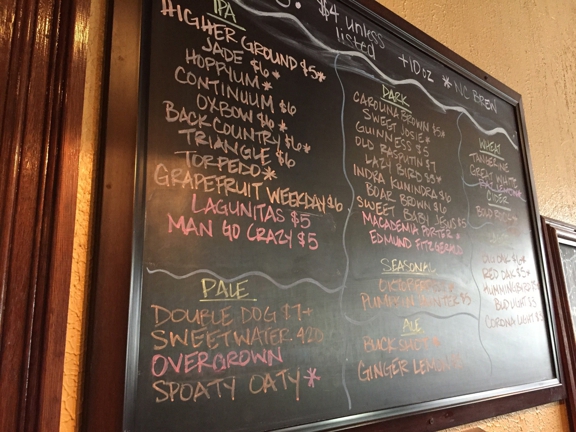 $4 unless
listed
+10 oz * NC BREW
IPA
HIGHER GROUND $5*
JADE $6*
HOPPYUM*
CONTINUUM $6
OXBOW $6*
BACKCOUNTRY $6*
TRIANGLE $6
TORPEDO*
GRAPEFRUIT WEEKDAY $6
LAGUNITAS $5
MAN GO CRAZY $5
PALE
DOUBLE DOG $7+
SWEETWATER 420
OVERGROWN
SPOATY OATY*
DARK
CAROLINA BROWN $5*
SWEET JOSIE*
GUINNESS $5
OLD RASPUTIN $7
LAZY BIIRD $5*
INDRA KUNINDRA $6
BOAR BROWN $6
SWEET BABY JESUS $5
MACADEMIA PORTER
EDMUND FITZGERALD
SEASONAL
OKTOBERFEST
PUMPKIN HUNTER $5
ALE
BUCK SHOT
GINGER LEMON
WHEAT
TANGERINE
GREAT WHITE
CIDER
RED OAK $5*
HUMMINGBIRD
BUD LIGHT $3
CORONA LIGHT $3